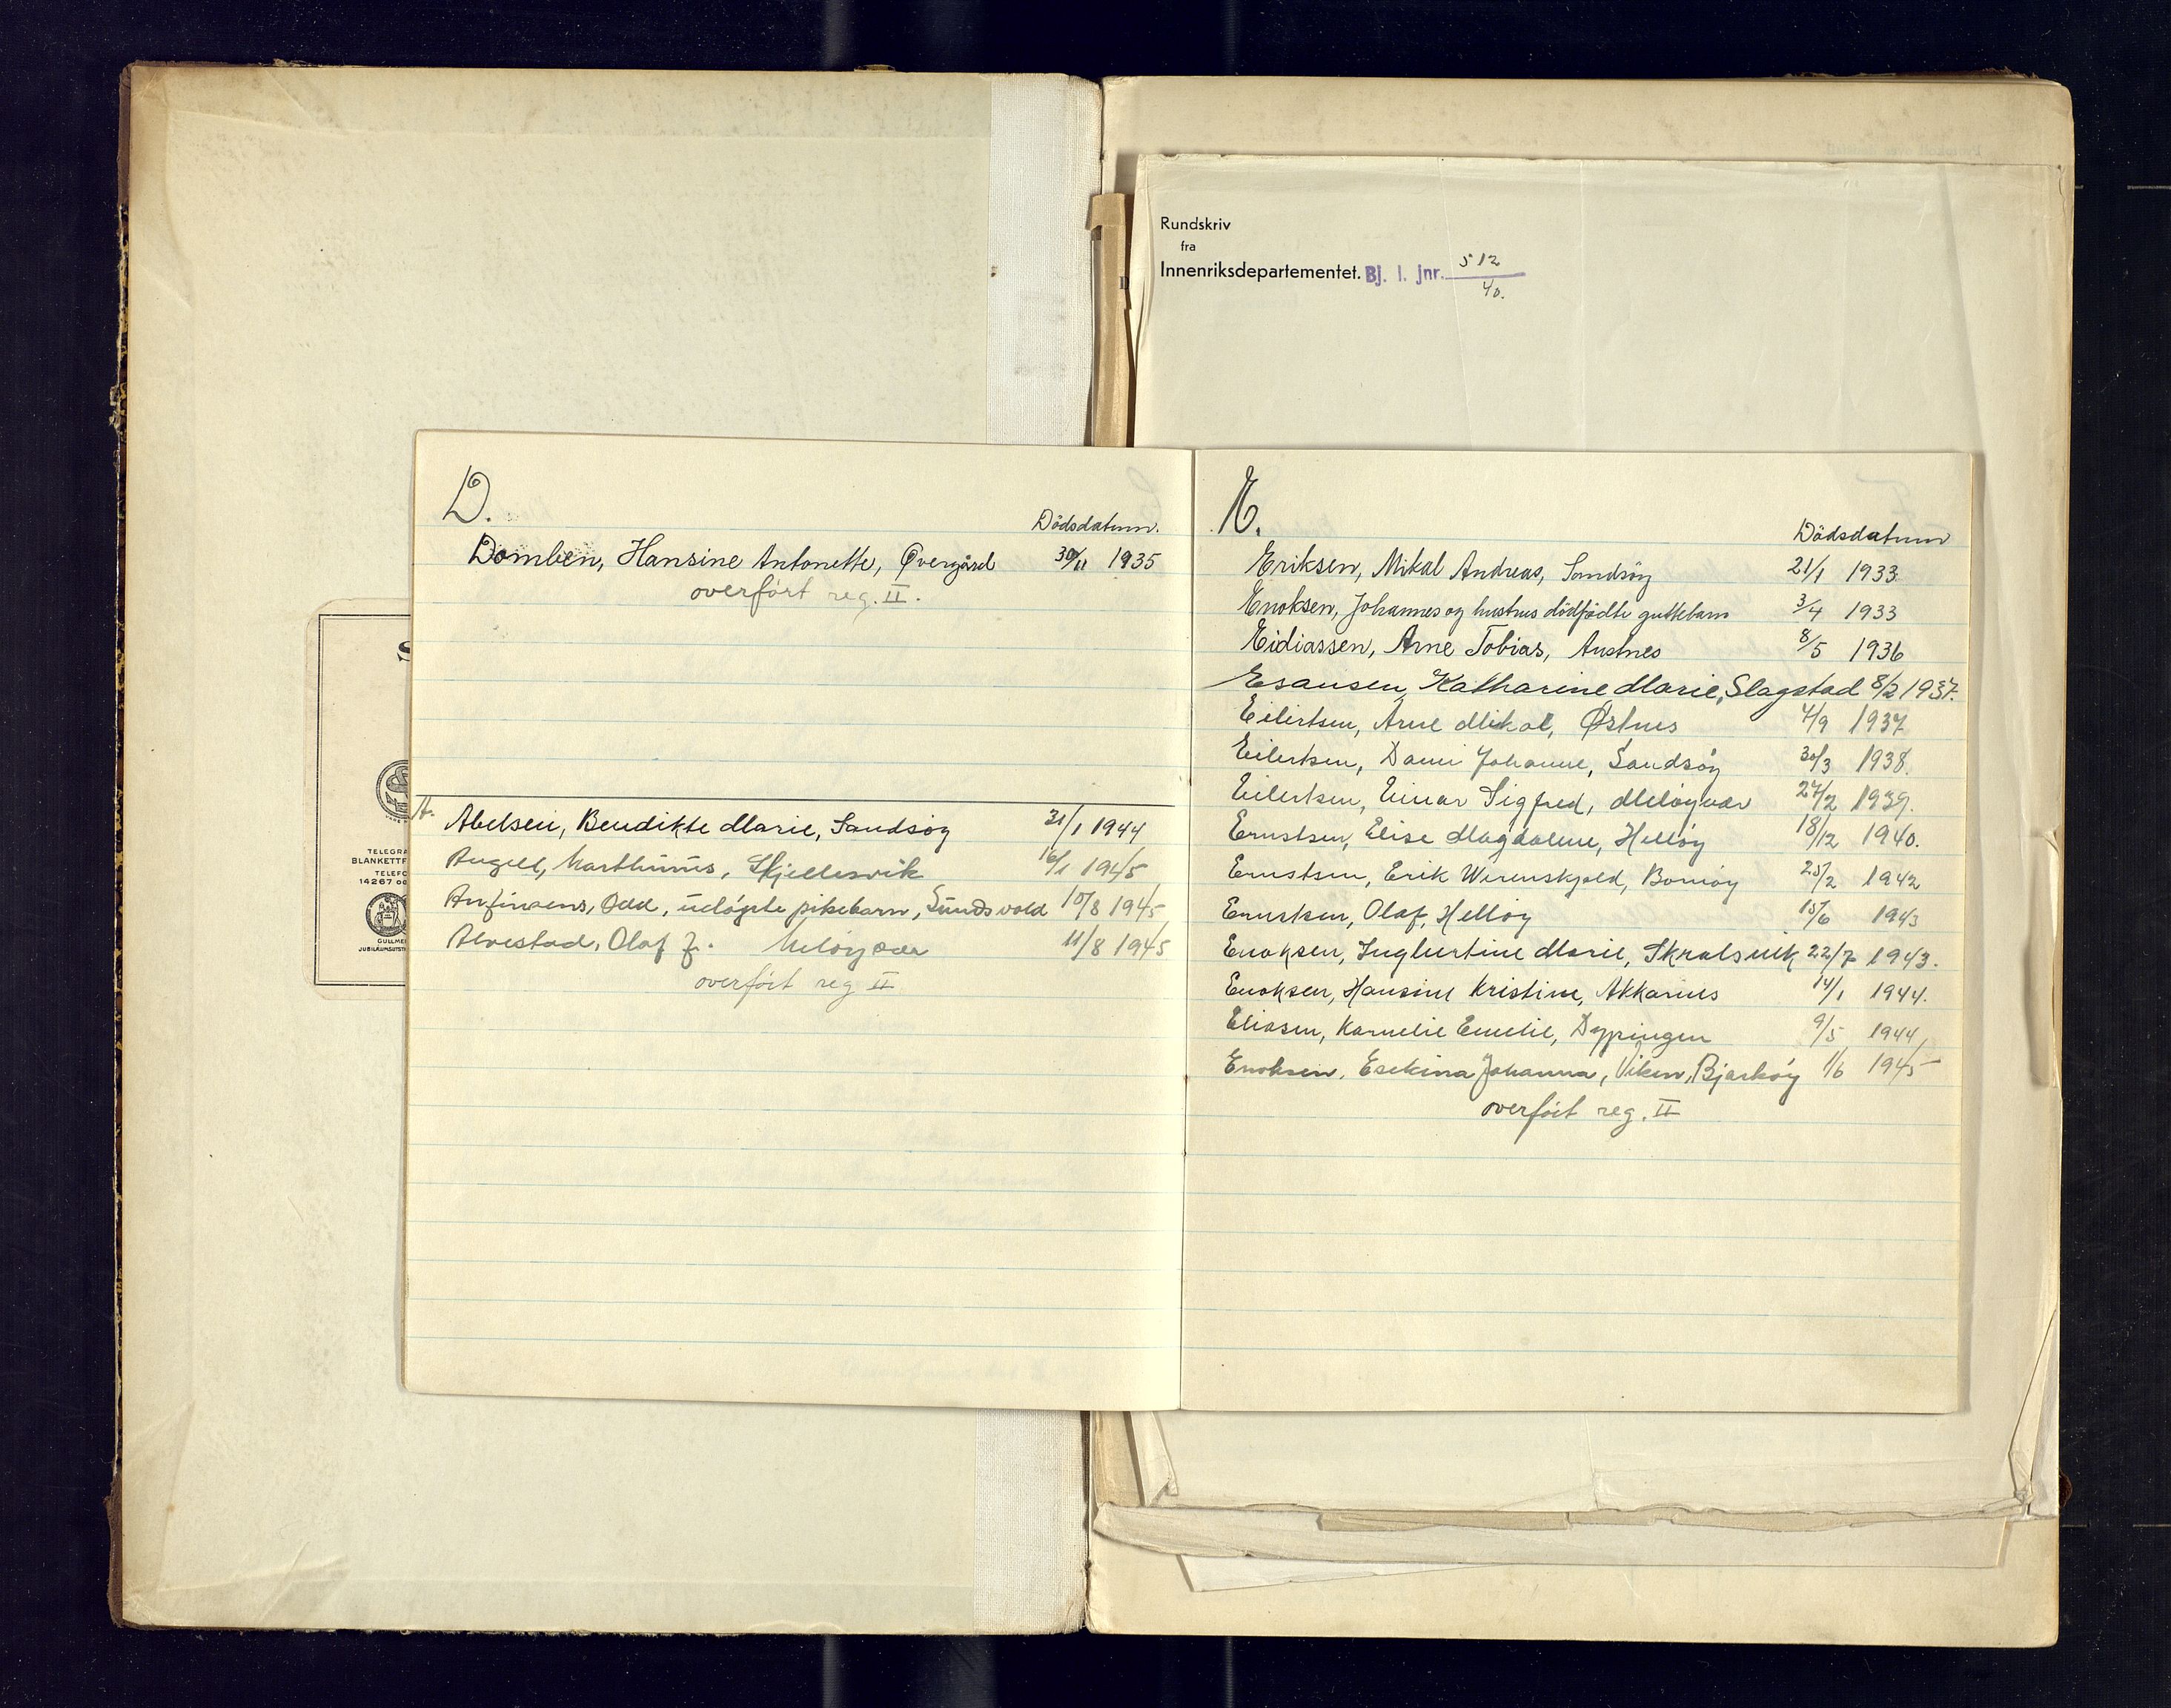 Rundskriv
fra
Innenriksdepartementet. Bj. l. jnr. 512
40.
TELEGRA
BLANKETTF
TELEFO
14267 oc
GULLME
JUBILÆUMSUTST
D.
Dødsdatum.
Domben, Hansine Antonette, Øvergård 30/11 1935
overført reg. II.
A.
Abelsen, Bendikte Marie, Sandsøy 31/1 1944
Angell, Marthinus, Skjellesvik 16/1 1945
Anfinsens, Odd, udøpte pikebarn, Sundsvold 10/8 1945
Alvestad, Olaf J. Meløyvær 11/8 1945
overført reg II
E.
Dødsdatum
Eriksen, Mikal Andreas, Sandsøy 21/1 1933
Enoksen, Johannes og hustrus dødfødte guttebarn 3/4 1933
Eidiassen, Arne Tobias, Austnes 8/5 1936
Esausen, Katharine Marie, Slagstad 8/2 1937.
Eilertsen, Arne Mikal, Østnes 4/9 1937
Eilertsen, Dami Johanne, Sandsøy 30/3 1938.
Eilertsen, Einar Sigfred, Meløyvær 27/2 1939.
Ernstsen, Elise Magdalene, Helløy 18/12 1940.
Ernstsen, Erik Werenskjold, Bornøy 25/2 1942
Ernstsen, Olaf, Helløy 15/6 1943
Enoksen, Ingbertine Marie, Skralsvik 22/7 1943.
Enoksen, Hansine Kristine, Akkarnes 14/1 1944.
Eliasen, Kornelie Emelie, Dypingen 9/5 1944,
Enoksen, Esekina Johanna, Viken, Bjarkøy 1/6 1945
overført reg. II